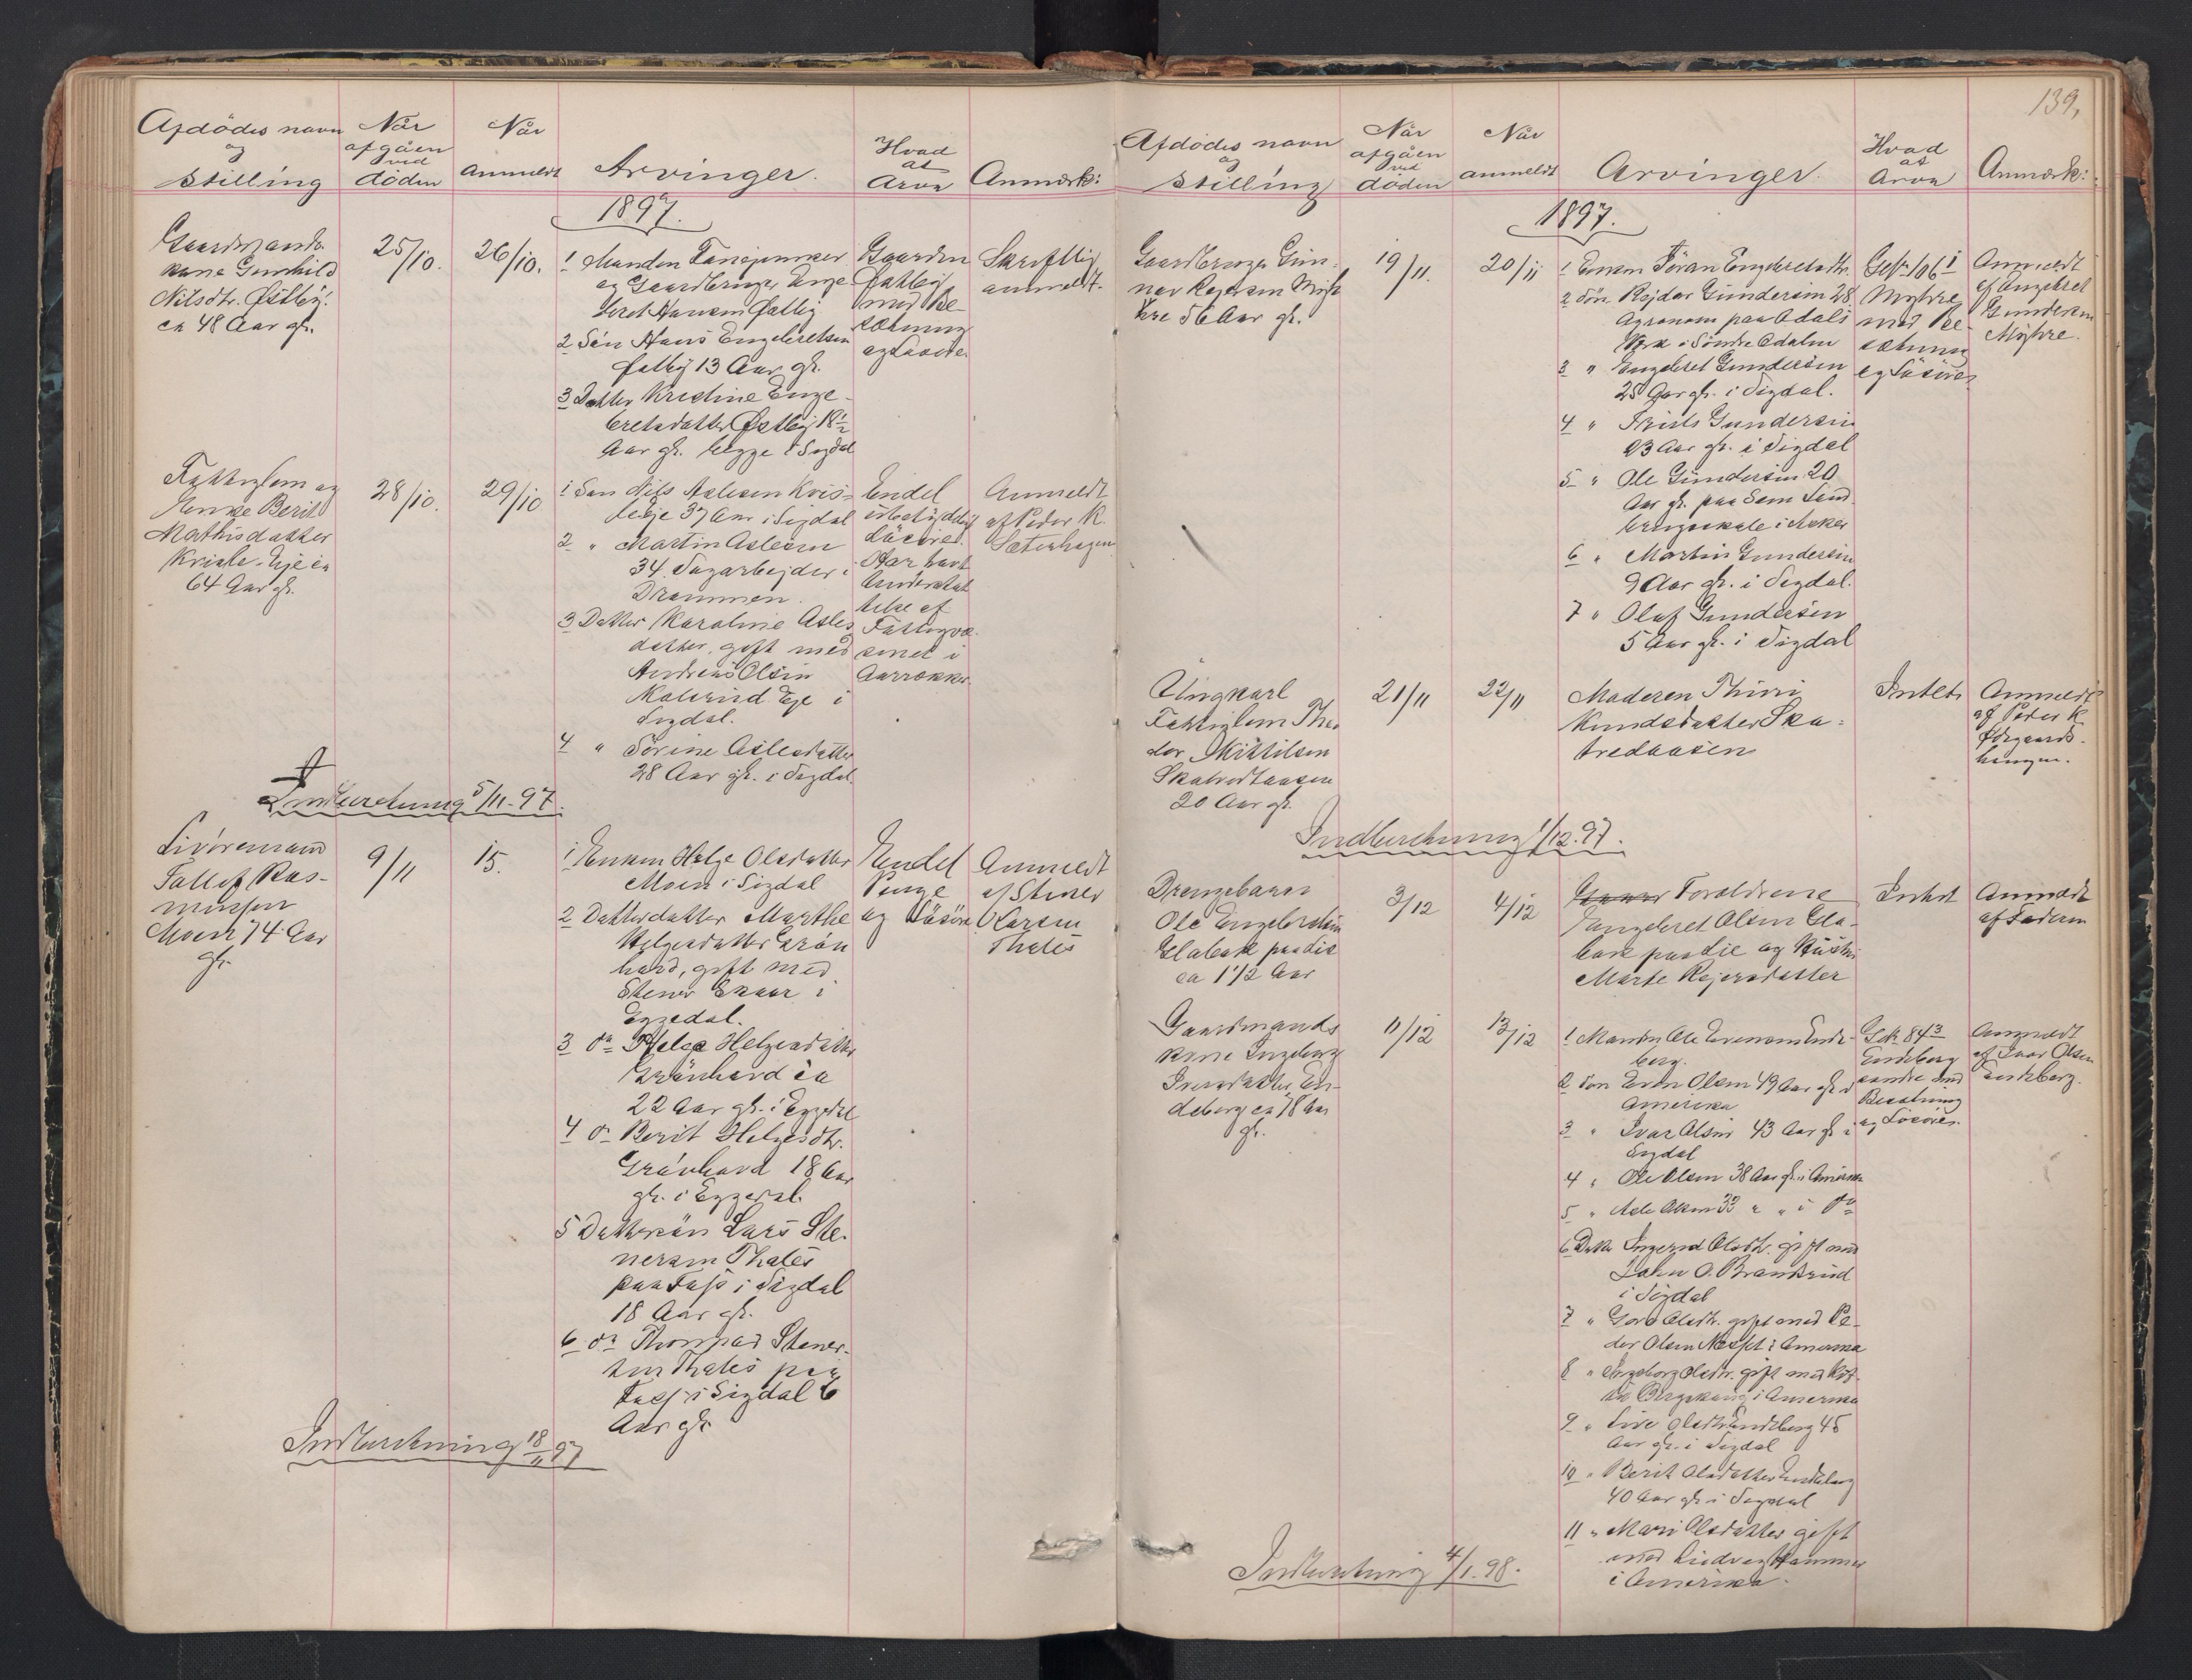 Afdödes navn
og
Stilling
Når
afgåen
ved
döden
Når
anmeldt
Arvinger.
Hvad
at
Arve
Anmærk:
1897.
Gaardmands
kone Gunhild
Nilsdtr. Østby.
ca 48 Aar gl.
25/10.
26/10.
1 Manden
og Gaardbruger Enge
bret Hansen Østby
2 Sön Hans Engebretsen
Østby 13 Aar gl.
3 Datter Kristine Enge-
bretsdatter Østby 18½
Aar gl. begge i Sigdal
Gaarden
Østby
med Be-
sætning
og Løsöre
Skriftlig
anmeldt.
Fattiglem og
Enke Berit
Mathisdatter
Kriste. Eje ca
64 Aar gl.
28/10.
29/10
1 Sön Nils Aslesen Kris-
teeje 37 Aar i Sigdal
2 " Martin Aslesen
34. Sagarbejder i
Drammen.
3 Datter Karoline Asles
datter, gift med
Andreas Olsen
Eje i
Sigdal.
4 " Sörine Aslesdatter
28 Aar gl. i Sigdal.
Endel
ubetydelig
Löсöre.
Har havt
Understöt
telse af
Fattigvæ-
senet i
Aarrækker.
Anmeldt
af Peder K.
Sæterhagen
Indberetning 5/11-97.
Livöremand
Tollef Ras-
mussen
Moen 74 Aar
gl.
9/11
15.
1 Enken Helge Olsdatter
Moen i Sigdal
2 Datterdatter Marthe
Helgesdatter Grön
hovd, gift med
Stener i
Eggedal.
3 do Helge Helgesdatter
Grönhovd ca
22 Aar gl. i Eggedal
4 do Berit Helgesdtr.
Grönhovd 18 Aar
gl. i Eggedal.
5 Dattersön Lars Ste-
nersen Thales
paa i Sigdal
18 Aar gl.
6 do Stener-
sen Thales paa
i Sigdal 6
Aar gl.
Endel
Penge
og Lösöre
Anmeldt
af Stener
Larsen
Thales
Indberetning 18/11 97
139,
Afdödes navn
og
Stilling
Når
afgåen
ved
döden
Når
anmeldt
Arvinger.
Hvad
at
Arve
Anmærk:
1897.
Gaardbruger Gun-
nar Rejersen Myh
hre 56 Aar gl.
19/11.
20/11
1 Enken Jöran Engebretsdtr.
2 Sön. Rejdar Gundersen 28
Agronom paa Odals
Værk i Söndre Odalen
3 " Engebret Gundersen
25 Aar gl. i Sigdal.
4 " Gundersen
23 Aar gl. i Sigdal
5 " Ole Gundersen 20
Aar gl. paa Sem Land
brugsskole i Asker
6 " Martin Gundersen
9 Aar gl. i Sigdal.
7 " Olaf Gundersen
5 Aar gl. i Sigdal
106 1
Myhre
med Be-
sætning
og Lösöre
Anmeldt
af Engebret
Gundersen
Myhre.
Ungkarl
Fattiglem Theo
dor Kittilsen
Skatvedtaasen
20 Aar gl.
21/11
22/11
Moderen Thuri
Knudsdatter Ska-
tvedaasen
Intet.
Anmeldt
af Peder K.
haugen.
Indberetning 1/12.97.
Drengebarn
Ole Engebretsen
Glabak paa Eie
ca 1½ Aar
3/12
4/12
Forældrene
Engebret Olsen Gla-
bak paa Eie og Hustru
Marte Rejersdatter
Intet
Anmeldt
af Faderen
Gaardmands
kone Ingeborg
Iversdatter En-
deberg ca 78 Aar
gl.
11/12
13/12
1 Manden Ole Evensen Ende-
berg.
2 Sön Even Olsen 49 Aar gl. i
Amerika
3 " Ivar Olsen 43 Aar gl. i
Sigdal
4 " Ole Olsen 38 Aar gl. i Amerika
5 " Asle Olsen 33 " " i do
6 Datter Ingerid Olsdtr. gift med
John O. Brandsrud
i Sigdal
7 " Goro Olsdtr. gift med Pe-
der Olsen i Amerika
8 " Ingeborg Olsdtr. gift med
i Amerika
9 " Live Olsdtr. Endeberg 45
Aar gl. i Sigdal
10 " Berit Olsdatter Endeberg
40 Aar gl. i Sigdal
11 " Mari Olsdatter gift
med Ludvig Hammer
i Amerika.
84 3
Endeberg
söndre med
Besætning
og Lösöre.
Anmeldt
af Ivar Olsen
Endeberg.
Indberetning 4/1.98.